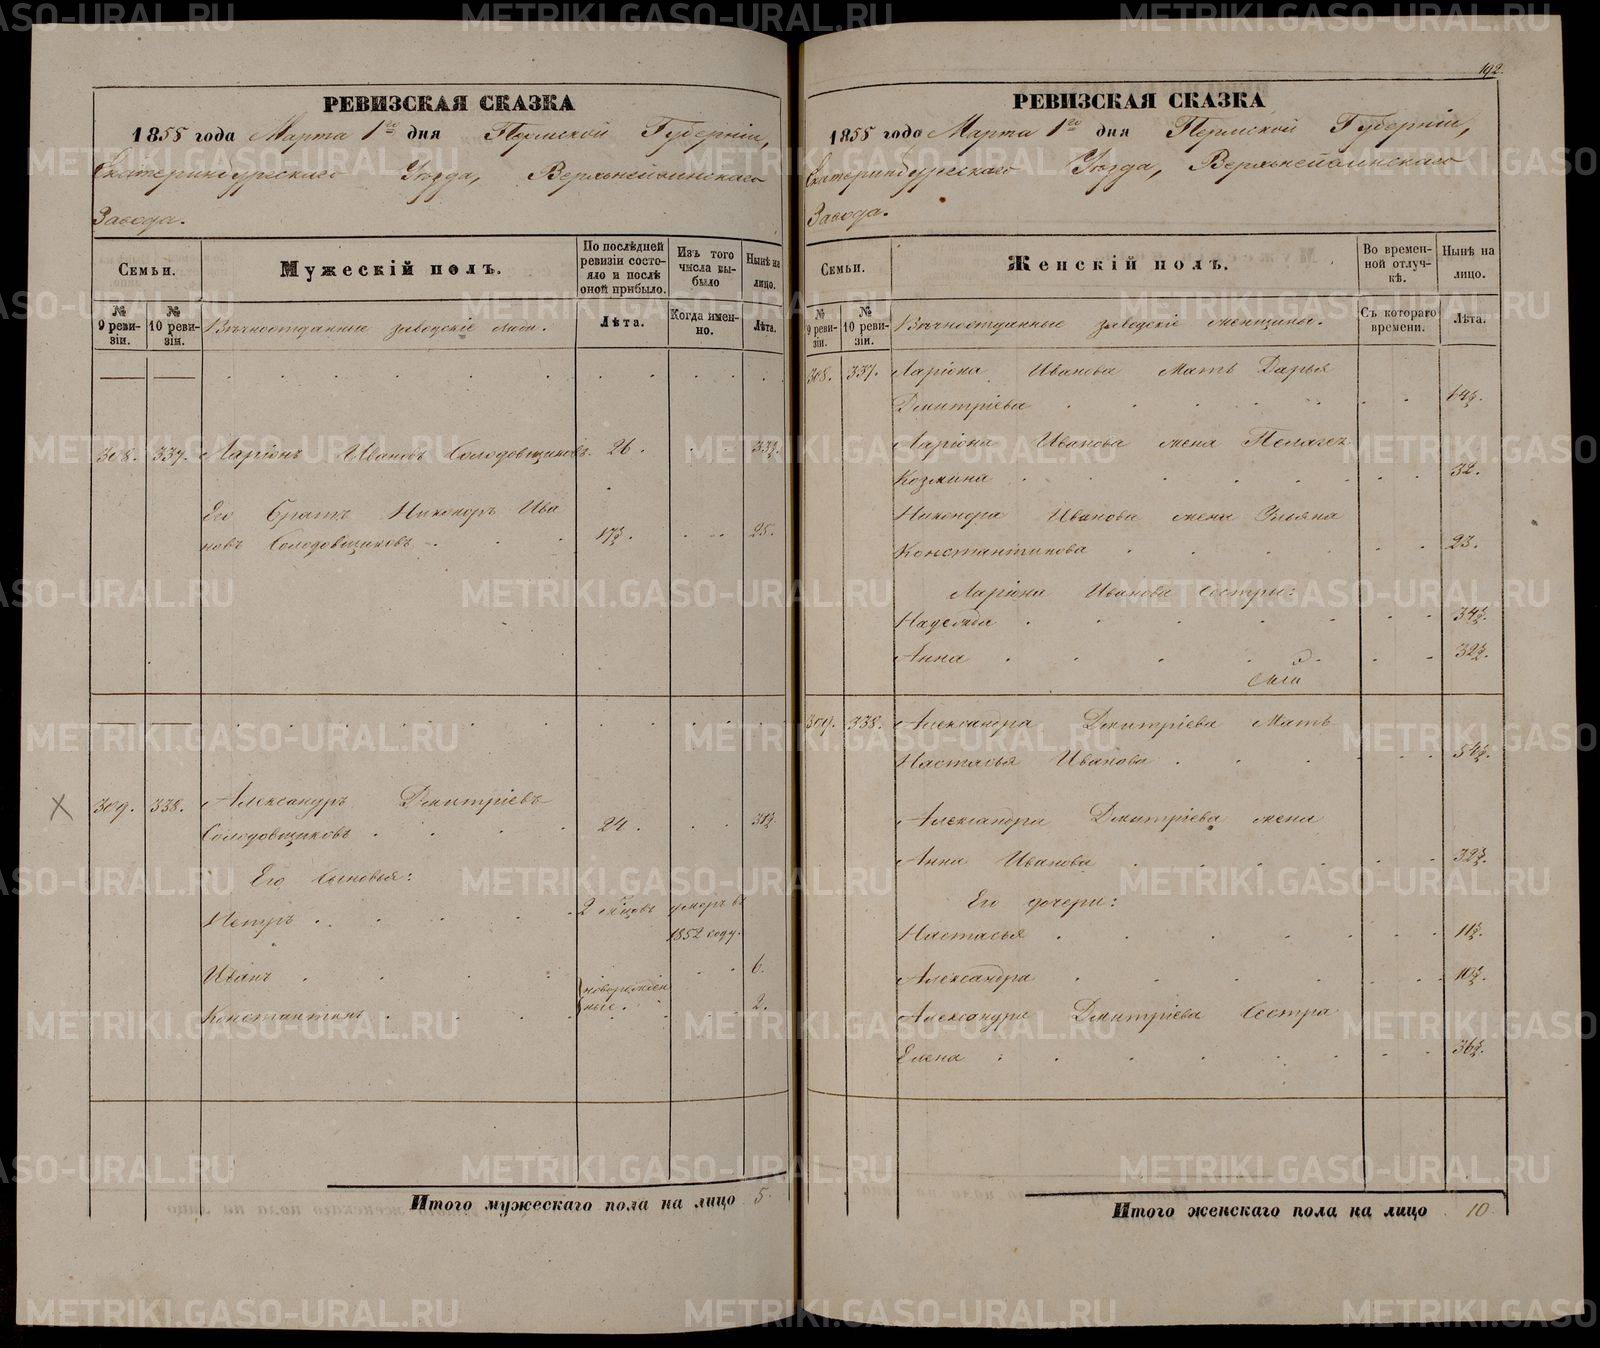 РЕВИЗСКАЯ СКАЗКА
1858 года Марта 1го дня Пермской Губерніи,
Екатеринбургскаго Уезда, Верхнейвинскаго
Завода.
Семьи.
Мужескій полъ.
По послѣдней ревизіи состояло и послѣ оной прибыло.
Изъ того числа выбыло
Нынѣ на лицо.
№ 9 ревизіи.
№ 10 ревизіи.
Вѣчноотданные заводскіе люди.
Лѣта.
Когда именно.
Лѣта.
308. 337. Ларіонъ Ивановъ Солодовщиковъ. 26. 33½.
Его братъ Никоноръ Ива
новъ Солодовщиковъ 17½. 25.
309. 338. Александръ Дмитріевъ
Солодовщиковъ 24. 31½.
Его сыновья:
Петръ 2 мѣсцовъ умеръ въ
1852 году.
Иванъ 6.
новорожден
ные.
Константинъ 2.
Итого мужескаго пола на лицо 5.
192.
РЕВИЗСКАЯ СКАЗКА
1858 года Марта 1го дня Пермской Губерніи,
Екатеринбургскаго Уезда, Верхнейвинскаго
Завода.
Семьи.
Женскій полъ.
Во временной отлучкѣ.
Нынѣ на лицо.
№ 9 ревизіи.
№ 10 ревизіи.
Вѣчноотданные заводскіе женщины.
Съ котораго времени.
Лѣта.
308. 337. Ларіона Иванова мать Дарья
Дмитріева 64½.
Ларіона Иванова жена Пелагея
Козмина 32.
Никонора Иванова жена Ульяна
Константинова 23.
Ларіона Иванова сестры:
Надежда 34½.
Анна 32½.
309. 338. Александра Дмитріева мать
Настасья Иванова 54½.
Александра Дмитріева жена
Анна Иванова 32½.
Его дочери:
Настасья 11½.
Александра 10½.
Александра Дмитріева сестра
Елена 36½.
Итого женскаго пола на лицо 10.
METRIKI.GASO-URAL.RU